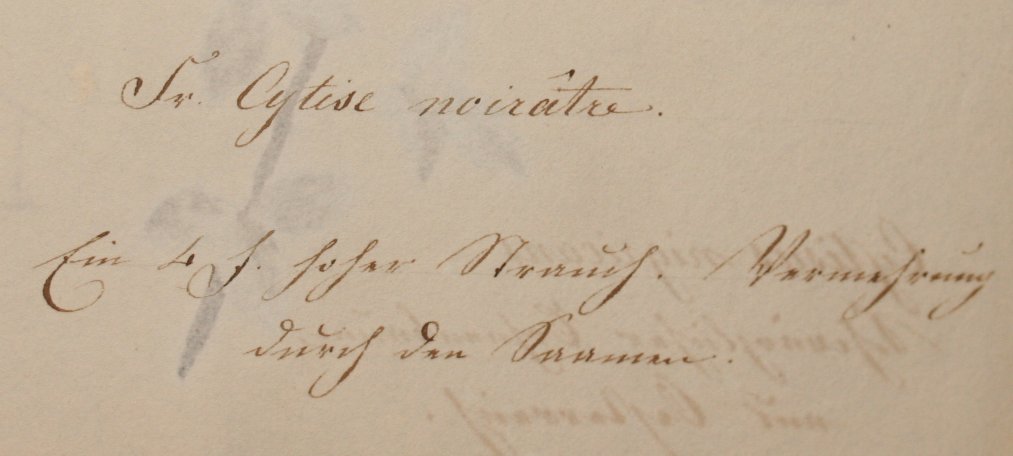 Fr. Cytise noirâtre.
Ein 4 f. hoher Strauch. Vermehrung
durch den Saamen.